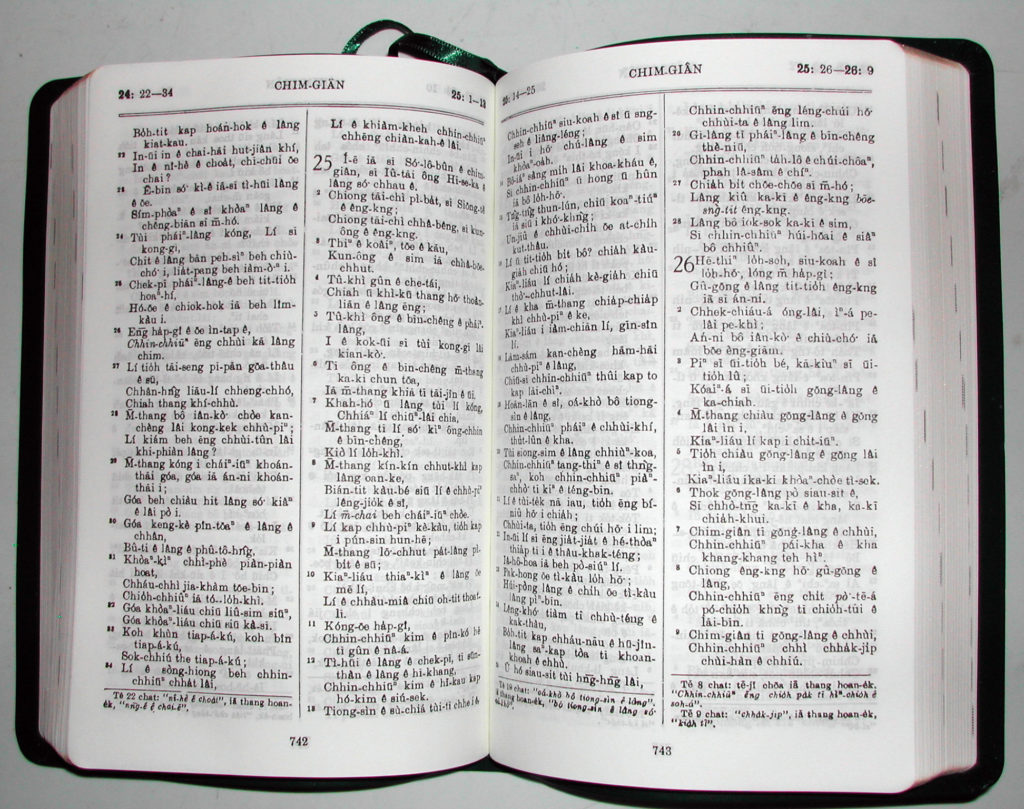 24: 22—34
CHIM-GIÂN
25: 1—13
Bo̍h-tit kap hoán-hok ê lâng
kiat-kau.
22 In-ūi in ê chai-hāi hut-jiân khí,
In ê nî-hè ê choa̍t, chī-chūi ōe
chai?
23 Ē-bīn só͘ kì-ê iā-sī tì-hūi lâng
ê ōe.
Sím-phòaⁿ ê sî khòaⁿ lâng ê
chêng-biān sī m̄-hó.
24 Tùi pháiⁿ-lâng kóng, Lí sī
kong-gī,
Chit ê lâng bān peh-sìⁿ beh chiù-
chó͘ i, lia̍t-pang beh iàm-ò͘ⁿ i.
25 Chek-pī pháiⁿ-lâng-ê beh tit-tio̍h
hoaⁿ-hí,
Hó-ōe ê chiok-hok iā beh lîm-
kàu i.
26 Èng ha̍p-gî ê ōe ìn-tap ê,
Chhin-chhiūⁿ ēng chhùi kā lâng
chim.
27 Lí tio̍h tāi-seng pī-pān gōa-thâu
ê sū,
Chhân-hn̂g liāu-lí chheng-chhó,
Chiah thang khí-chhù.
28 M̄-thang bô iân-kò͘ chòe kan-
chèng lâi kong-kek chhù-piⁿ;
Lí kiám beh ēng chhùi-tûn lâi
khi-phiàn lâng?
29 M̄-thang kóng i cháiⁿ-iūⁿ khoán-
thāi góa, góa iā án-ni khoán-
thāi i;
Góa beh chiàu hit lâng só͘ kiâⁿ
ê lâi pò i.
30 Góa keng-kè pîn-tōaⁿ ê lâng ê
chhân,
Bû-tì ê lâng ê phû-tô-hn̂g,
31 Khòaⁿ-kìⁿ chhì-phè piàn-piàn
hoat,
Chháu-chhì jia-khàm tōe-bīn;
Chio̍h-chhiûⁿ iā tó-lo̍h-khì.
32 Góa khòaⁿ-liáu chiū liû-sim siūⁿ,
Góa khòaⁿ-liáu chiū siū kà-sī.
33 Koh khùn tiap-á-kú, koh bīn
tiap-á-kú,
Sok-chhiú the tiap-á-kú;
34 Lí ê sòng-hiong beh chhin-
chhiūⁿ chha̍t lâi,
Tē 22 chat: "nî-hè ê choa̍t", iā thang hoan-
e̍k, "nn̄g-ê ê chai-ē".
Lí ê khiàm-kheh chhin-chhiūⁿ
chhēng chiàn-kah-ê lâi.
25 Í-ē iā sī Só͘-lô-bûn ê chim-
giân, sī Iû-tāi ông Hi-se-ka ê
lâng só͘ chhau ê.
2 Chiong tāi-chì pì-ba̍t, sī Siōng-tè
ê êng-kng;
Chiong tāi-chì chhâ-bêng, sī kun-
ông ê êng-kng.
3 Thiⁿ ê koâiⁿ, tōe ê kāu,
Kun-ông ê sim iā chhâ-bōe-
chhut.
4 Tû-khì gûn ê che-tái,
Chiah ū khì-kū thang hō͘ thoân-
liān ê lâng ēng;
5 Tû-khì ông ê bīn-chêng ê pháiⁿ-
lâng,
I ê kok-ūi sī tùi kong-gī lâi
kian-kò͘.
6 Tī ông ê bīn-chêng m̄-thang
ka-kī chun tōa,
Iā m̄-thang khiā tī tāi-jîn ê ūi.
7 Khah-hó ū lâng tùi lí kóng,
Chhiáⁿ lí chiūⁿ-lâi chia,
M̄-thang tī lí só͘ kìⁿ ông-chhin
ê bīn-chêng,
Kiò lí lo̍h-khì.
8 M̄-thang kín-kín chhut-khì kap
lâng oan-ke,
Bián-tit kàu-bé siū lí ê chhù-piⁿ
lêng-jio̍k ê sî,
Lí m̄-chai beh cháiⁿ-iūⁿ chòe.
9 Lí kap chhù-piⁿ kè-kàu, tio̍h kap
i pún-sin hun-hē;
M̄-thang lō͘-chhut pa̍t-lâng pì-
bi̍t ê sū;
10 Kiaⁿ-liáu thiaⁿ-kìⁿ ê lâng ōe
mē lí,
Lí ê chhàu-miâ chiū oh-tit thoat-
lī.
11 Kóng-ōe ha̍p-gî,
Chhin-chhiūⁿ kim ê pîn-kó hē
tī gûn ê nâ-á.
12 Tì-hūi ê lâng ê chek-pī, tī sūn-
thàn ê lâng ê hī-khang,
Chhin-chhiūⁿ kim ê hī-kau kap
hó-kim ê siú-sek.
13 Tiong-sìn ê sù-chiá tùi-tī chhe i ê
742
25: 14—25
CHIM-GIÂN
25: 26—26: 9
Chhin-chhiūⁿ siu-koah ê sî ū sng-
seh ê liâng-léng;
In-ūi i hō͘ chú-lâng ê sim
khòaⁿ-oa̍h.
Si̍ chhin-chhiūⁿ ū hong ū hûn
iā bô lo̍h-hō͘.
Tn̂g-tn̂g thun-lún, chiū koaⁿ-tiúⁿ
iā siū i khó͘-khǹg;
Un-jiû ê chhùi-chi̍h ōe at-chi̍h
kut-thâu.
Lí ū tit-tio̍h bi̍t bô? chiah kàu-
gia̍h chiū hó;
Kiaⁿ-liáu lí chia̍h kè-gia̍h chiū
thò͘-chhut-lâi.
Lí ê kha m̄-thang chia̍p-chia̍p
khì chhù-piⁿ ê ke,
Kiaⁿ-liáu i iàm-chiān lí, gîn-sīn
lí.
Lām-sám kan-chèng hām-hāi
chhù-piⁿ ê lâng,
Chiū-sī chhin-chhiūⁿ thûi kap to
kap lāi-chìⁿ.
Hoān-lān ê sî, oá-khò bô tiong-
sìn ê lâng,
Chhin-chhiūⁿ pháiⁿ ê chhùi-khí,
thut-lûn ê kha.
Tùi siong-sim ê lâng chhiùⁿ-koa,
Chhin-chhiūⁿ tang-thiⁿ ê sî thǹg-
saⁿ, koh chhin-chhiūⁿ piàⁿ-
chhò͘ tī kiⁿ ê téng-bīn.
Lí ê tùi-te̍k nā iau, tio̍h ēng bí-
niû hō͘ i chia̍h;
Chhùi-ta, tio̍h ēng chúi hō͘ i lim;
In-ūi lí sī ēng jia̍t-jia̍t ê hé-thòaⁿ
thia̍p tī i ê thâu-khak-téng;
Iâ-hô-hoa iā beh pò-siúⁿ lí.
Pak-hong ōe tì-kàu lo̍h hō͘;
Húi-pòng lâng ê chi̍h ōe tì-kàu
lâng pìⁿ-bīn.
Lêng-khó͘ tiàm tī chhù-téng ê
kak-thâu,
Bo̍h-tit kap chháu-nāu ê hū-jîn-
lâng saⁿ-kap tòa tī khoan-
khoah ê chhù.
Ū hó siau-sit tùi hn̄g-hn̄g lâi,
Chhin-chhiūⁿ ēng léng-chúi hō͘
chhùi-ta ê lâng lim.
26 Gī-lâng tī pháiⁿ-lâng ê bīn-chêng
thè-niū,
Chhin-chhiūⁿ ta̍h-lô ê chúi-chôaⁿ,
phah lâ-sâm ê chíⁿ.
27 Chia̍h bi̍t chōe-chōe sī m̄-hó;
Lâng kiû ka-kī ê êng-kng bōe-
sǹg-tit êng-kng.
28 Lâng bô iok-sok ka-kī ê sim,
Sī chhin-chhiūⁿ húi-hōai ê siâⁿ
bô chhiûⁿ.
26 Hē-thiⁿ lo̍h-soh, siu-koah ê sî
lo̍h-hō͘, lóng m̄ ha̍p-gî;
Gû-gōng ê lâng tit-tio̍h êng-kng
iā sī án-ni.
2 Chhek-chiáu-á óng-lâi, ìⁿ-á pe-
lâi pe-khì;
Án-ni bô iân-kò͘ ê chiù-chó͘ iā
bōe èng-giām.
3 Piⁿ sī ūi-tio̍h bé, kā-kiùⁿ sī ūi-
tio̍h lû;
Kóaiⁿ-á sī ūi-tio̍h gōng-lâng ê
ka-chiah.
4 M̄-thang chiàu gōng-lâng ê gōng
lâi ìn i,
Kiaⁿ-liáu lí kap i chi̍t-iūⁿ.
5 Tio̍h chiàu gōng-lâng ê gōng lâi
ìn i,
Kiaⁿ-liáu i ka-kī khòaⁿ-chòe tì-sek.
6 Thok gōng-lâng pò siau-sit ê,
Sī chhò-tn̄g ka-kī ê kha, ka-kī
chia̍h-khui.
7 Chim-giân tī gōng-lâng ê chhùi,
Chhin-chhiūⁿ pái-kha ê kha
khang-khang teh hìⁿ.
8 Chiong êng-kng hō͘ gû-gōng ê
lâng,
Chhin-chhiūⁿ ēng chi̍t pò͘-tē-á
pó-chio̍h khǹg tī chio̍h-tui ê
lāi-bīn.
9 Chim-giân tī gōng-lâng ê chhùi,
Chhin-chhiūⁿ chhì chha̍k-ji̍p
chùi-hàn ê chhiú.
Tē 8 chat: tē-jī chōa iā thang hoan-e̍k,
"Chhin-chhiūⁿ ēng chio̍h pa̍k tī hìⁿ-chio̍h ê
soh-á".
Tē 9 chat: "chha̍k-ji̍p", iā thang hoan-e̍k,
"kia̍h tī".
743